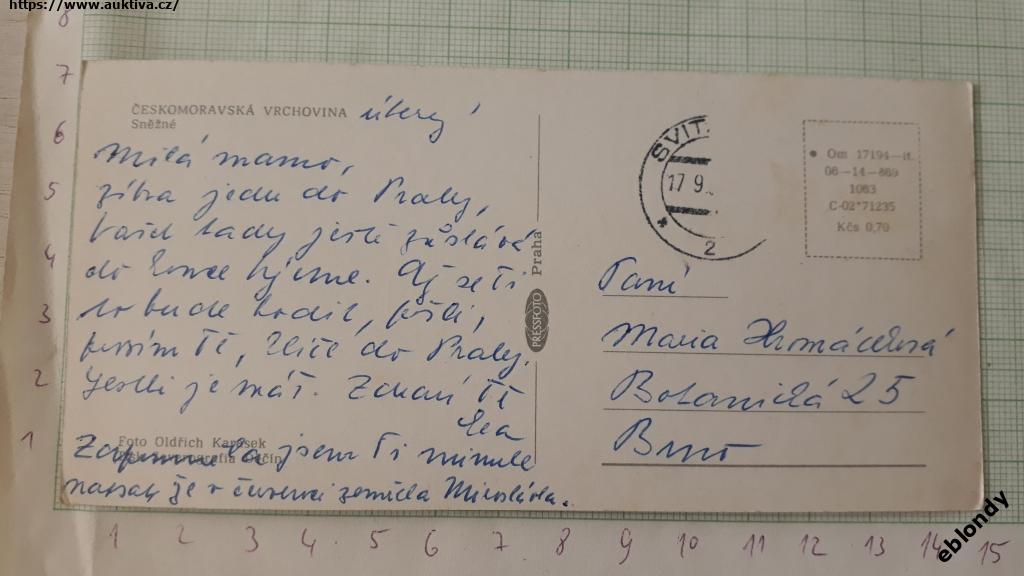 https://www.auktiva.cz/
ČESKOMORAVSKÁ VRCHOVINA úterý
Sněžné
Milá mamo,
zítra jedu do Prahy,
tady ještě zůstává
do týdne. Až se Ti
to bude hodit, pošli,
prosím Tě, klíč do Prahy.
Jestli je máš. Zdraví Tě
Eva
Foto Oldřich Karásek
Zapomněla jsem Ti minule
napsat, že v červenci zemřela Miroslava.
PRESSFOTO Praha
SVIT.
17 9.
* 2
Om 17194—it.
06—14—869
1083
C-02*71235
Kčs 0,70
Paní
Maria Hrmáčková
Botanická 25
Brno
eblondy
8
7
6
5
4
3
2
1
1 2 3 4 5 6 7 8 9 10 11 12 13 14 15